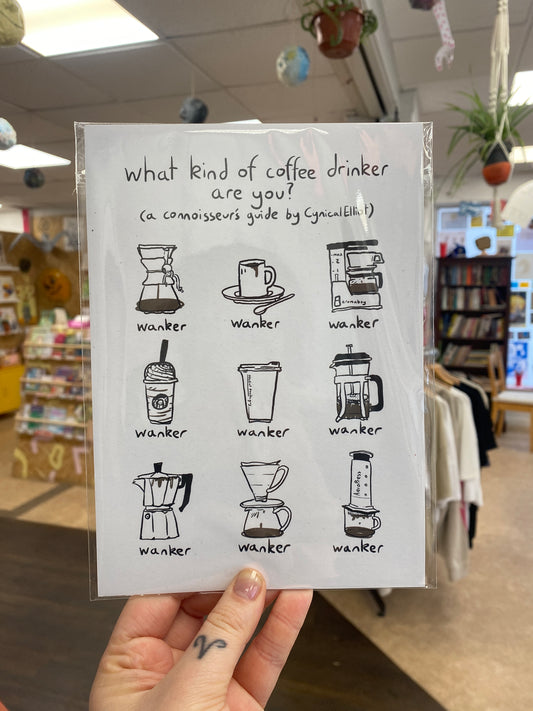 what kind of coffee drinker
are you?
(a connoisseur's guide by CynicalElliot)
wanker wanker wanker
wanker wanker wanker
AeroPress
wanker wanker wanker